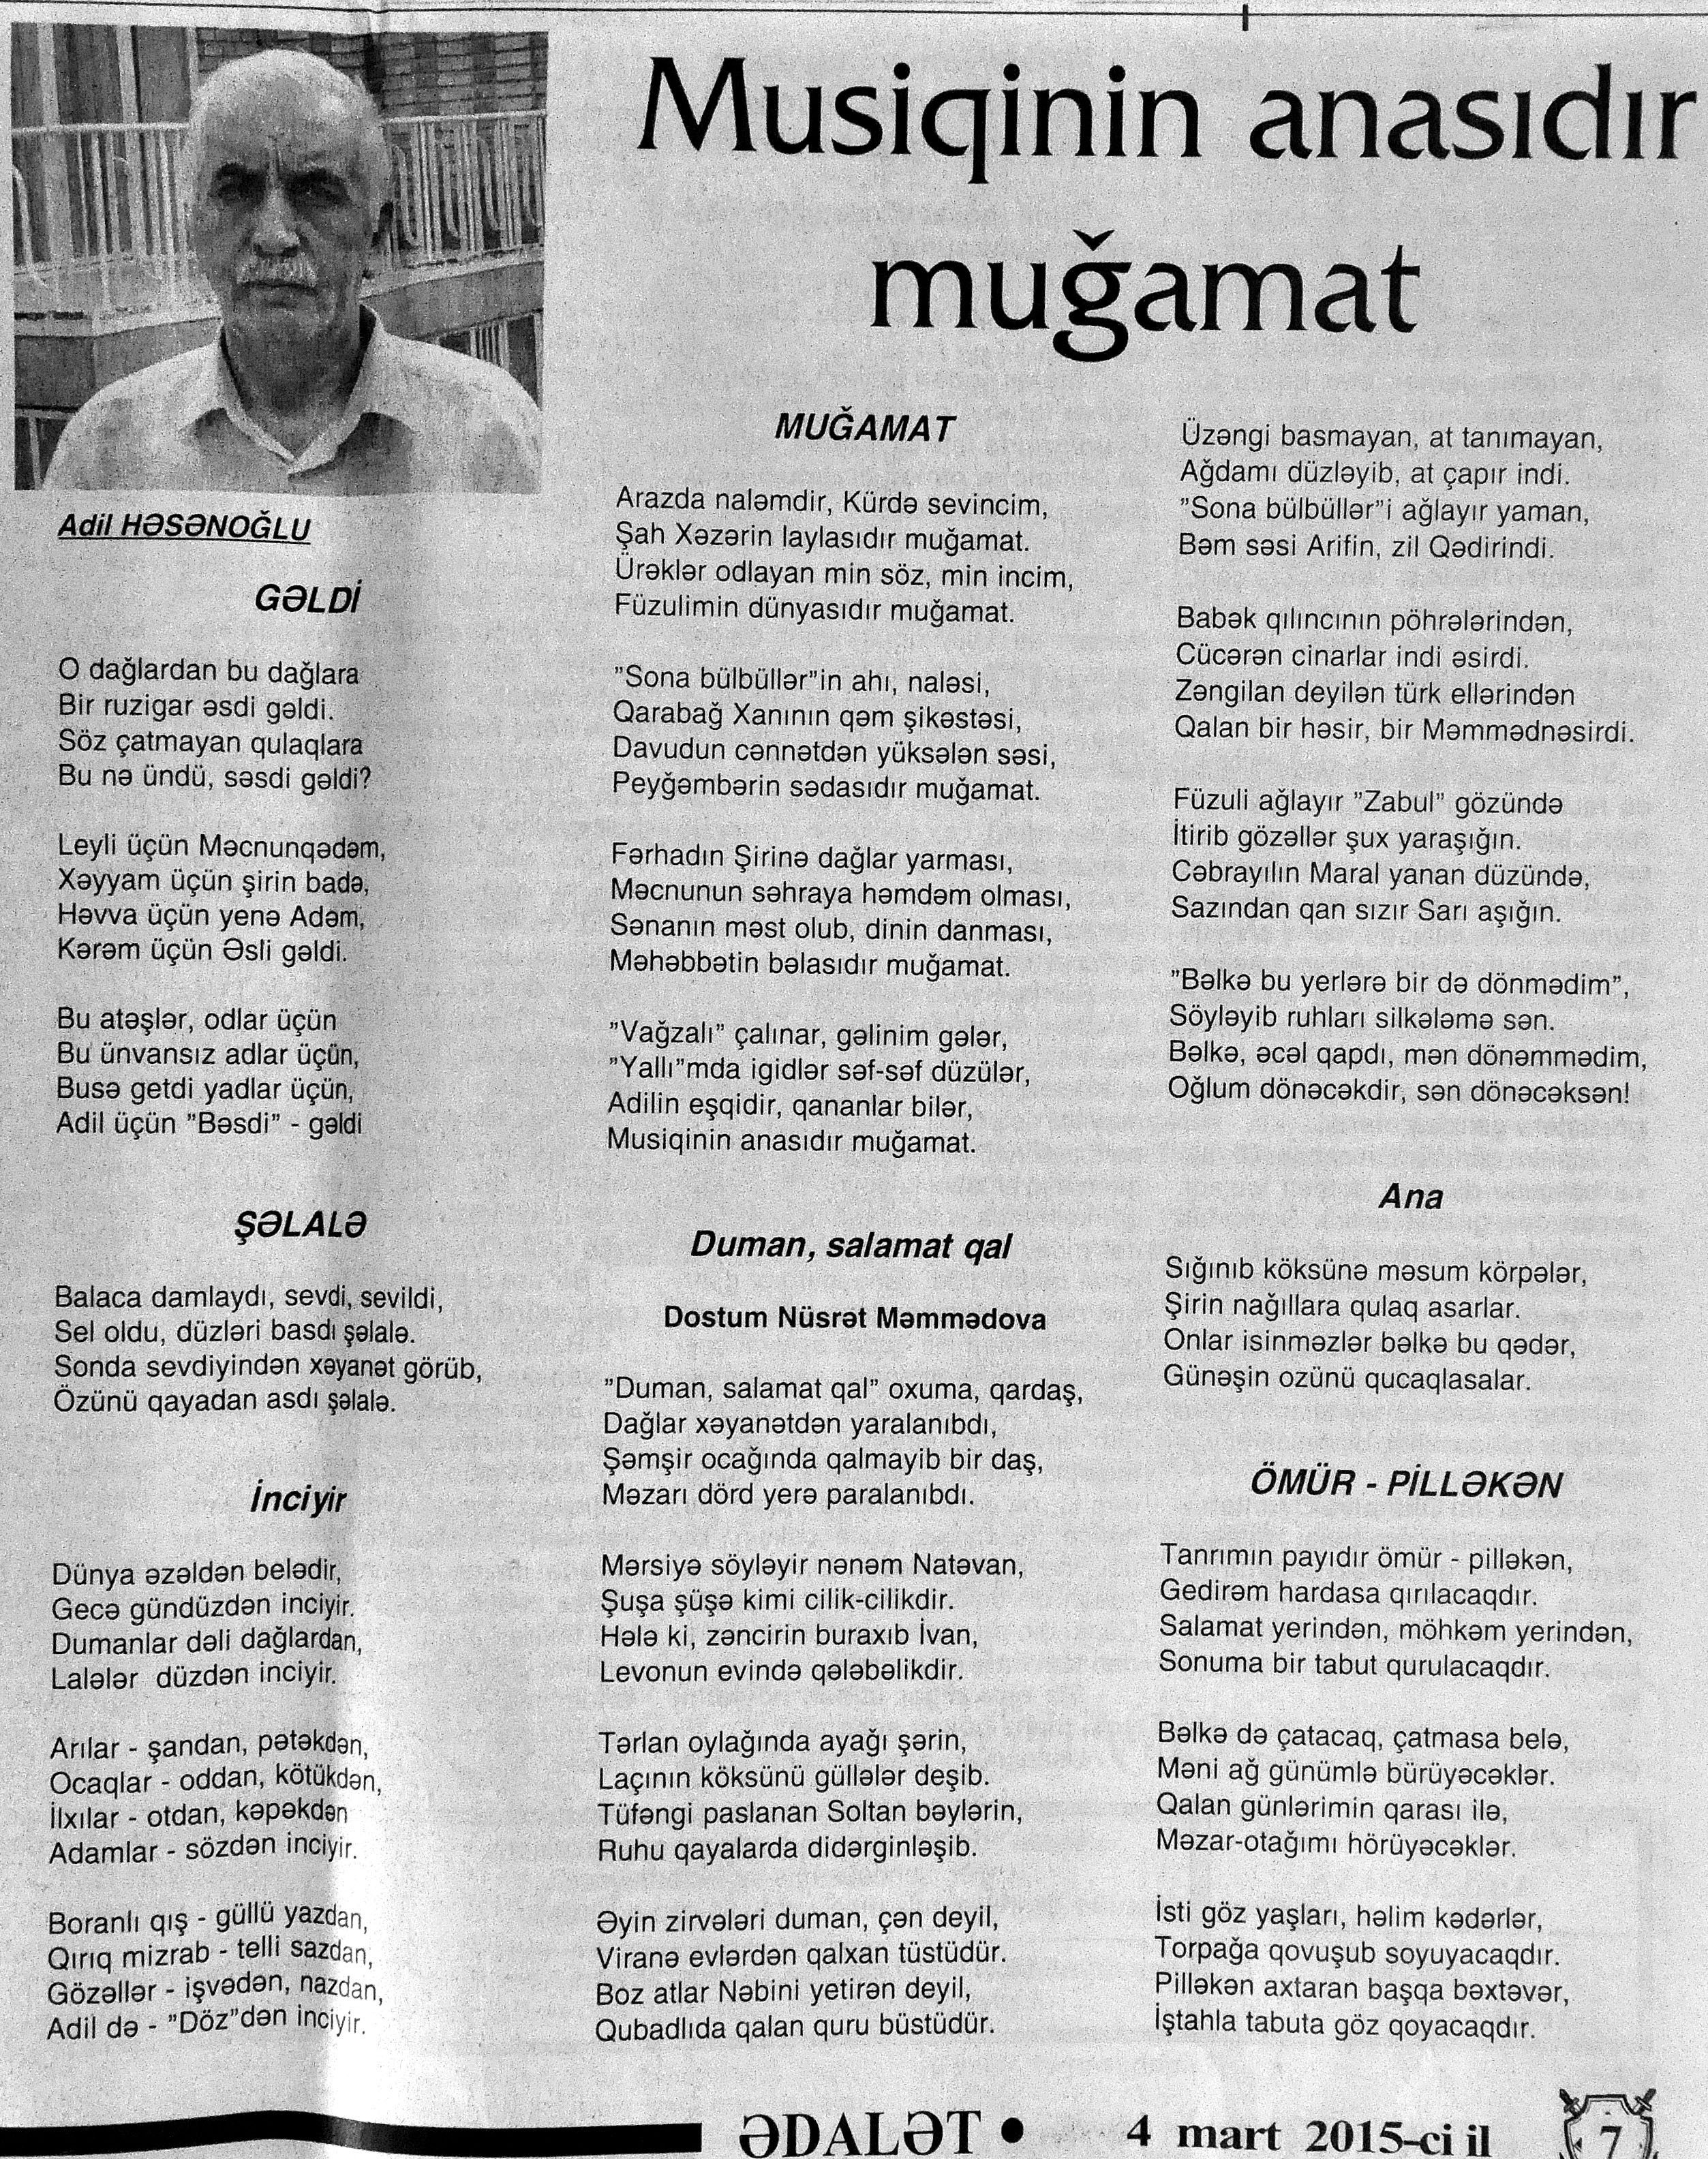 Musiqinin anasıdır
muğamat
Adil HƏSƏNOĞLU
GƏLDİ
O dağlardan bu dağlara
Bir ruzigar əsdi gəldi.
Söz çatmayan qulaqlara
Bu nə ündü, səsdi gəldi?
Leyli üçün Məcnunqədəm,
Xəyyam üçün şirin badə,
Həvva üçün yenə Adəm,
Kərəm üçün Əsli gəldi.
Bu atəşlər, odlar üçün
Bu ünvansız adlar üçün,
Busə getdi yadlar üçün,
Adil üçün "Bəsdi" - gəldi
ŞƏLALƏ
Balaca damlaydı, sevdi, sevildi,
Sel oldu, düzləri basdı şəlalə.
Sonda sevdiyindən xəyanət görüb,
Özünü qayadan asdı şəlalə.
İnciyir
Dünya əzəldən belədir,
Gecə gündüzdən inciyir.
Dumanlar dəli dağlardan,
Lalələr düzdən inciyir.
Arılar - şandan, pətəkdən,
Ocaqlar - oddan, kötükdən,
İlxılar - otdan, kəpəkdən
Adamlar - sözdən inciyir.
Boranlı qış - güllü yazdan,
Qırıq mizrab - telli sazdan,
Gözəllər - işvədən, nazdan,
Adil də - "Döz"dən inciyir.
MUĞAMAT
Arazda naləmdir, Kürdə sevincim,
Şah Xəzərin laylasıdır muğamat.
Ürəklər odlayan min söz, min incim,
Füzulimin dünyasıdır muğamat.
"Sona bülbüllər"in ahı, naləsi,
Qarabağ Xanının qəm şikəstəsi,
Davudun cənnətdən yüksələn səsi,
Peyğəmbərin sədasıdır muğamat.
Fərhadın Şirinə dağlar yarması,
Məcnunun səhraya həmdəm olması,
Sənanın məst olub, dinin danması,
Məhəbbətin bəlasıdır muğamat.
"Vağzalı" çalınar, gəlinim gələr,
"Yallı"mda igidlər səf-səf düzülər,
Adilin eşqidir, qananlar bilər,
Musiqinin anasıdır muğamat.
Duman, salamat qal
Dostum Nüsrət Məmmədova
"Duman, salamat qal" oxuma, qardaş,
Dağlar xəyanətdən yaralanıbdı,
Şəmşir ocağında qalmayib bir daş,
Məzarı dörd yerə paralanıbdı.
Mərsiyə söyləyir nənəm Natəvan,
Şuşa şüşə kimi cilik-cilikdir.
Hələ ki, zəncirin buraxıb İvan,
Levonun evində qələbəlikdir.
Tərlan oylağında ayağı şərin,
Laçının köksünü güllələr deşib.
Tüfəngi paslanan Soltan bəylərin,
Ruhu qayalarda didərginləşib.
Əyin zirvələri duman, çən deyil,
Viranə evlərdən qalxan tüstüdür.
Boz atlar Nəbini yetirən deyil,
Qubadlıda qalan quru büstüdür.
Üzəngi basmayan, at tanımayan,
Ağdamı düzləyib, at çapır indi.
"Sona bülbüllər"i ağlayır yaman,
Bəm səsi Arifin, zil Qədirindi.
Babək qılıncının pöhrələrindən,
Cücərən cinarlar indi əsirdi.
Zəngilan deyilən türk ellərindən
Qalan bir həsir, bir Məmmədnəsirdi.
Füzuli ağlayır "Zabul" gözündə
İtirib gözəllər şux yaraşığın.
Cəbrayılın Maral yanan düzündə,
Sazından qan sızır Sarı aşığın.
"Bəlkə bu yerlərə bir də dönmədim",
Söyləyib ruhları silkələmə sən.
Bəlkə, əcəl qapdı, mən dönəmmədim,
Oğlum dönəcəkdir, sən dönəcəksən!
Ana
Sığınıb köksünə məsum körpələr,
Şirin nağıllara qulaq asarlar.
Onlar isinməzlər bəlkə bu qədər,
Günəşin ozünü qucaqlasalar.
ÖMÜR - PİLLƏKƏN
Tanrımın payıdır ömür - pilləkən,
Gedirəm hardasa qırılacaqdır.
Salamat yerindən, möhkəm yerindən,
Sonuma bir tabut qurulacaqdır.
Bəlkə də çatacaq, çatmasa belə,
Məni ağ günümlə bürüyəcəklər.
Qalan günlərimin qarası ilə,
Məzar-otağımı hörüyəcəklər.
İsti göz yaşları, həlim kədərlər,
Torpağa qovuşub soyuyacaqdır.
Pilləkən axtaran başqa bəxtəvər,
İştahla tabuta göz qoyacaqdır.
ƏDALƏT • 4 mart 2015-ci il 7